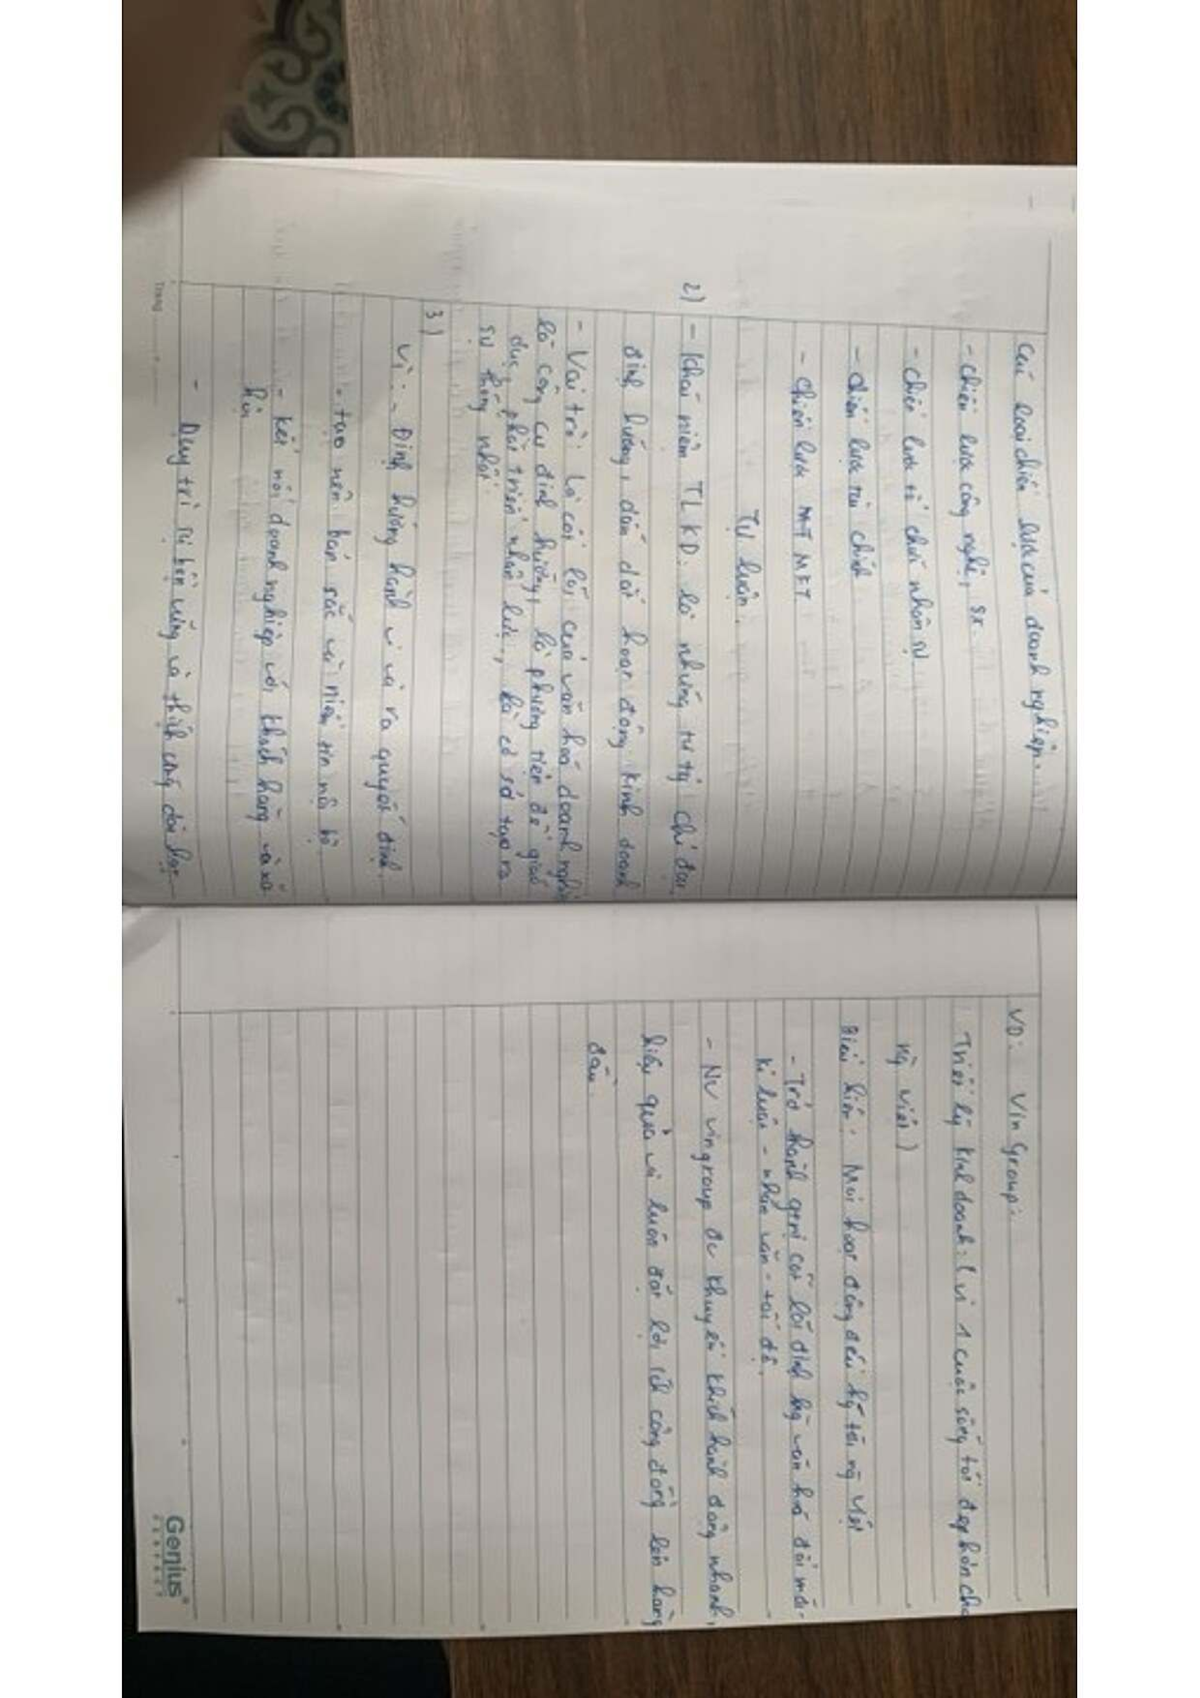 Các loại chiến lược của doanh nghiệp.
- chiến lược công nghệ, sx.
- chiến lược tổ chức nhân sự
- chiến lược tài chính
- chiến lược MKT
Tự luận.
2) - Khái niệm TLKD: là những tư tg chỉ đạo,
định hướng, dẫn dắt hoạt động kinh doanh
- Vai trò: là cốt lõi của văn hoá doanh nghiệp
là công cụ định hướng, là phương tiện để giáo
dục, phát triển nhân lực, là cơ sở tạo ra
sự thống nhất.
3)
Vì: - Định hướng hành vi và ra quyết định.
- tạo nên bản sắc và niềm tin nội bộ
- kết nối doanh nghiệp với khách hàng và xã
hội
- Duy trì sự bền vững và thích ứng dài hạn
Trang
VD: VinGroup:
Triết lý kinh doanh: (vì 1 cuộc sống tốt đẹp hơn cho
ng việt)
Biểu hiện: Mọi hoạt động đều hg tới ng việt
- Trở thành cốt lõi định hg văn hoá đổi mới -
kỉ luật - nhân văn - tốc độ.
- NV vingroup đc khuyến khích hành động nhanh,
hiệu quả và luôn đặt lợi ích cộng đồng lên hàng
đầu.
Genius